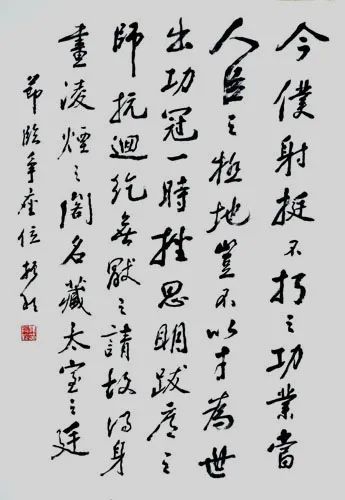 今僕射挺不朽之功業當
人臣之極地豈不以才為世
出功冠一時挫思明跋扈之
師抗迴紇無厭之請故得身
畫淩煙之閣名藏太室之廷
節臨爭座位